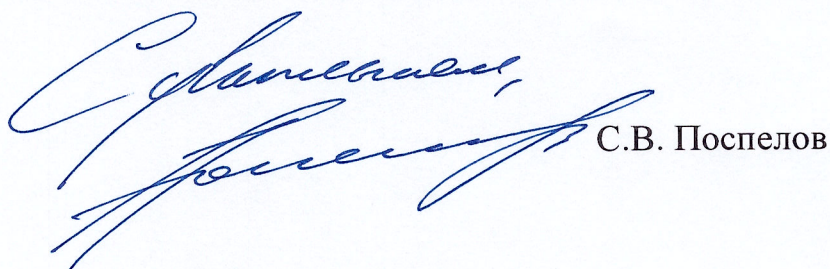 С уважением,
С.В. Поспелов